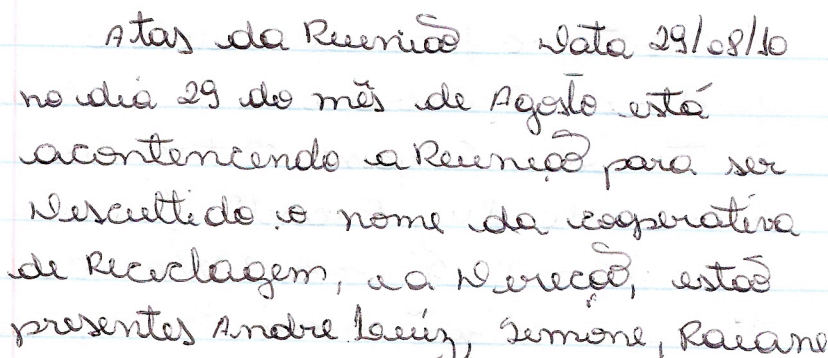 Atas da Reunião Data 29/08/10
no dia 29 do mês de Agosto está
acontencendo a Reuneção para ser
Discuttido o nome da cooperativa
de Reciclagem, e a Direcção, estão
presentes Andre Luíz, Simone, Raiane